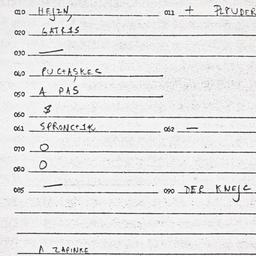 010 HEJZN, 011 + PLPUDER
020 GATRIS
030 —
040 PUCTASKES
050 A PAS
060 $
061 SPRONCTIK 062 —
070 O
080 O
085 — 090 DER KNEJC
A ZAFINKE